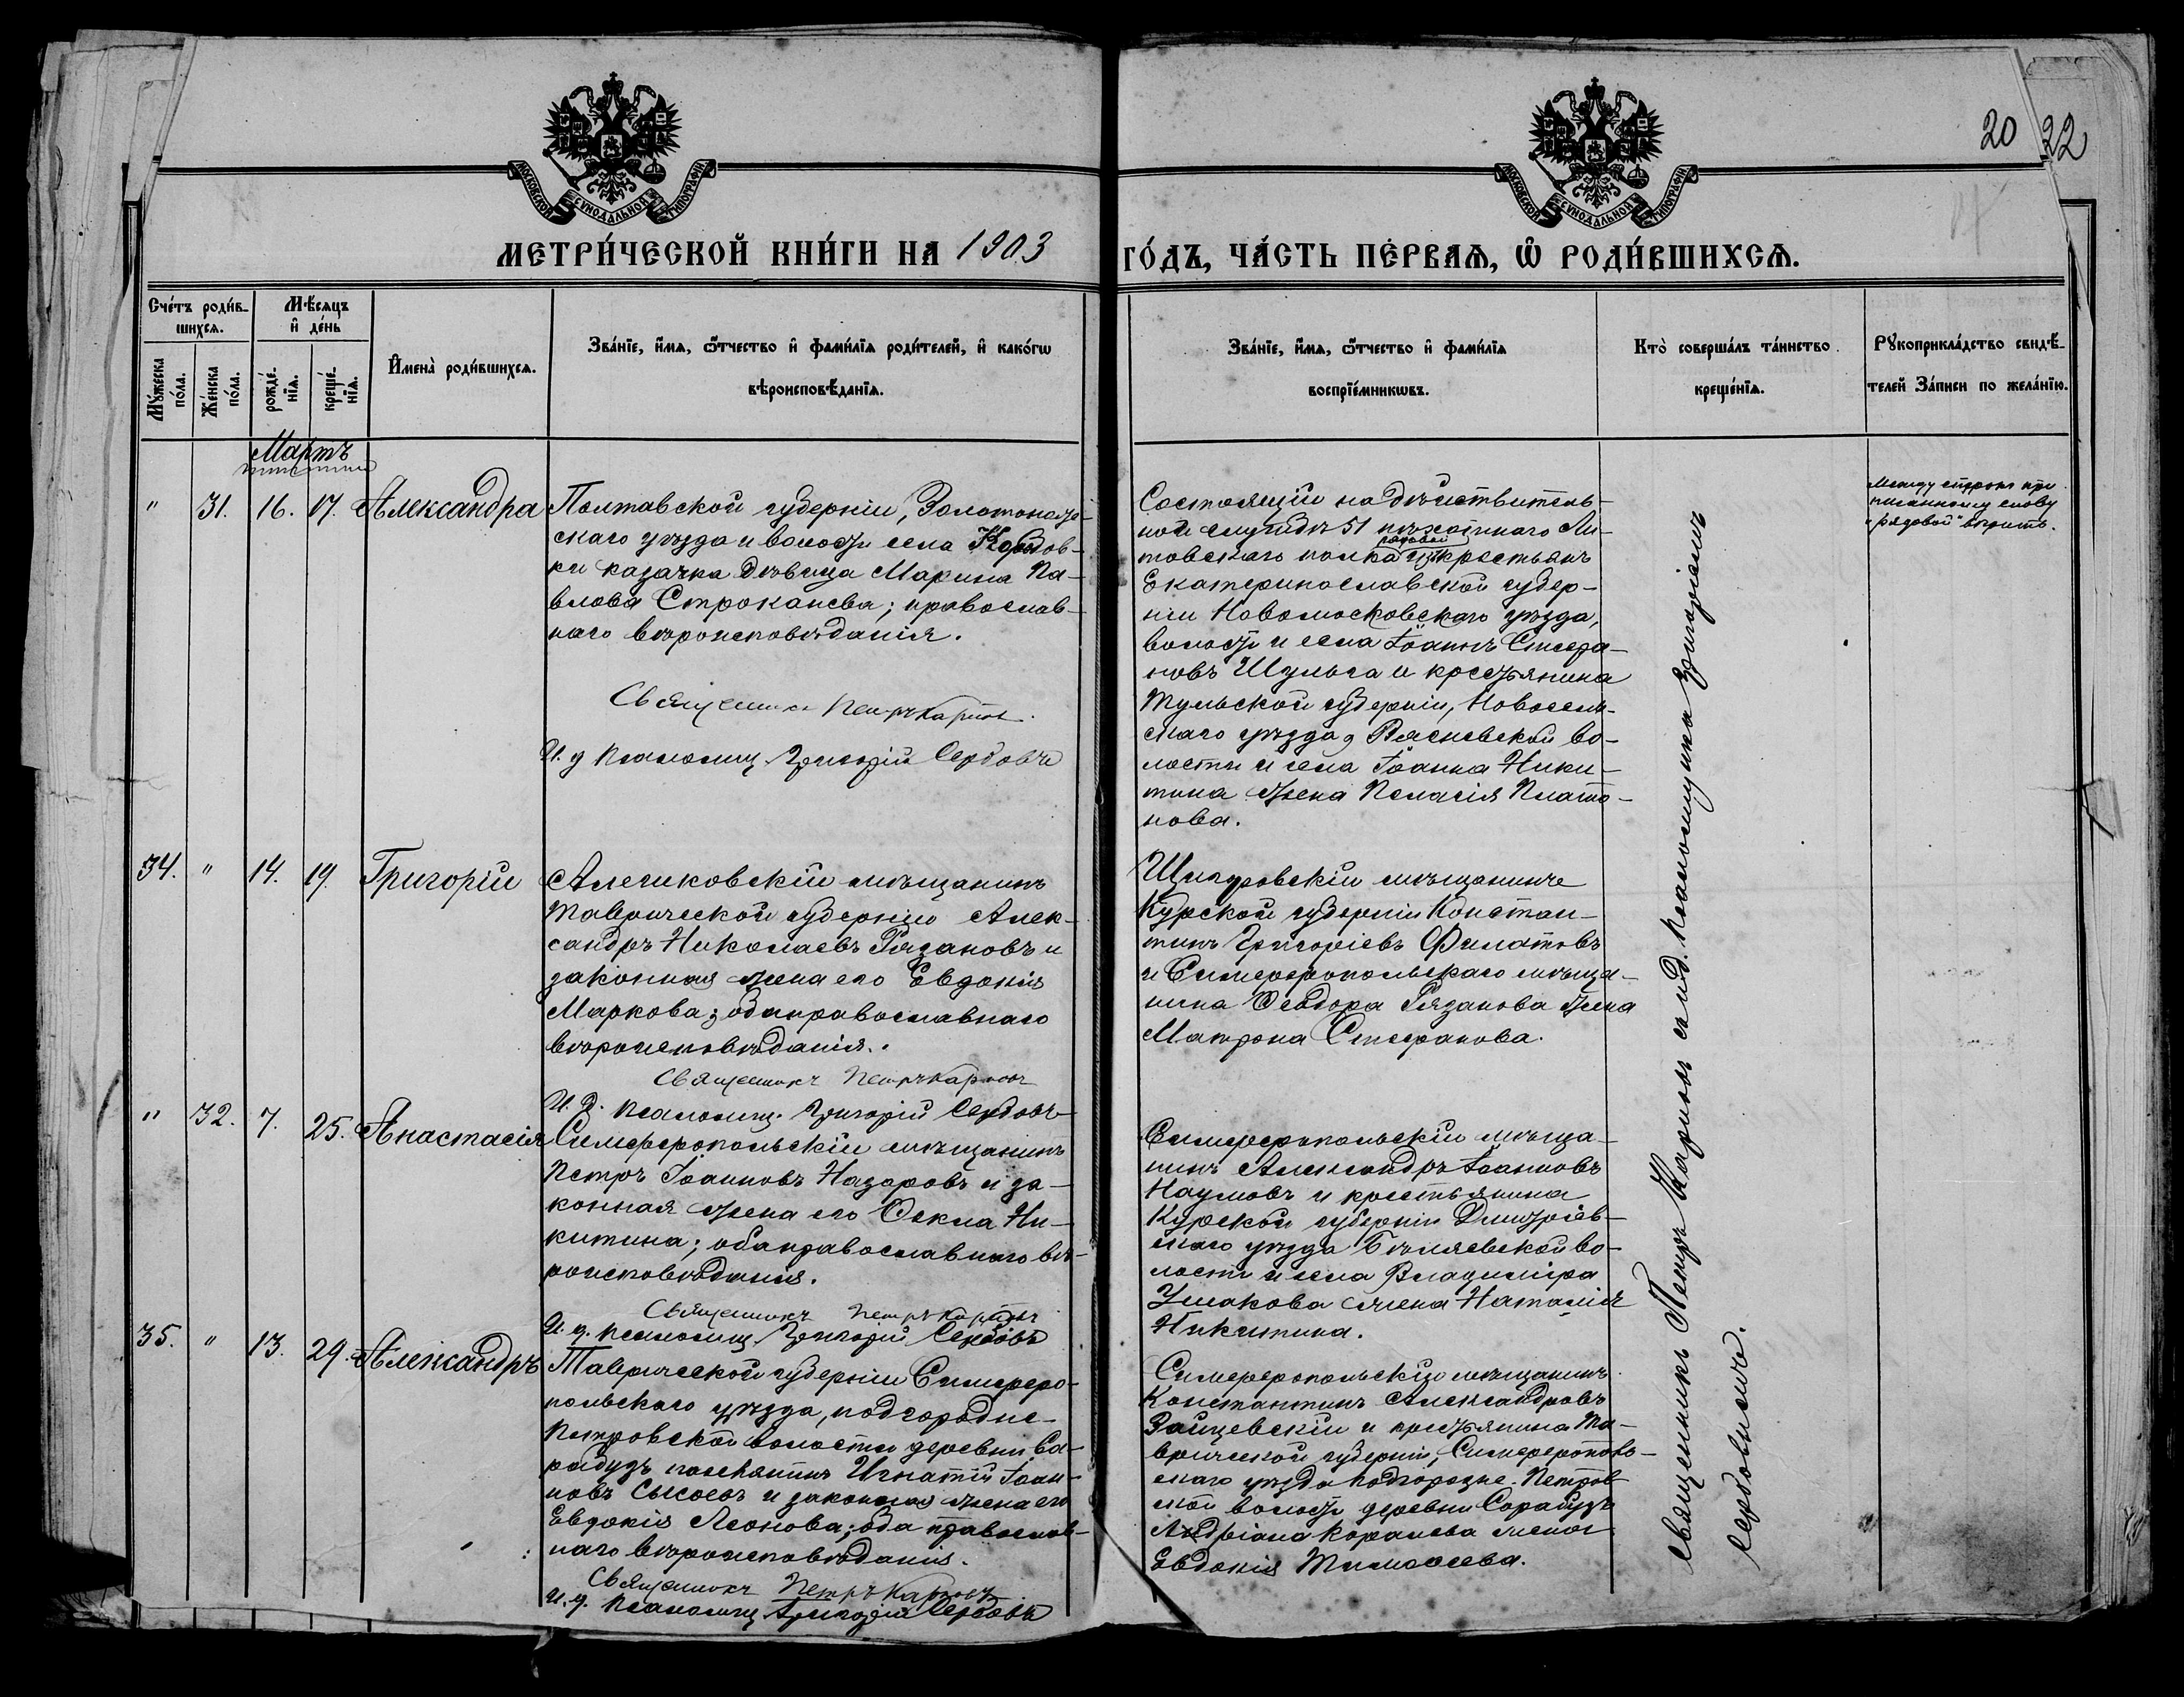 20 22
МОСКОВСКОЙ СУНОДАЛЬНОЙ ТИПОГРАФІИ
МОСКОВСКОЙ СУНОДАЛЬНОЙ ТИПОГРАФІИ
МЕТРИ́ЧЕСКОЙ КНИ́ГИ НА 1903 ГО́ДЪ, ЧА́СТЬ ПЕ́РВАѦ, Ѿ РОДИ́ВШИХСѦ.
Сче́тъ роди́в-
шихсѧ.
Мꙋ́жеска по́ла.
Же́нска по́ла.
Мѣ́сяцъ
и де́нь
рожде́-
нїѧ.
креще́-
нїѧ.
И҆мена̀ роди́вшихсѧ.
Зва́нїе, и҆́мѧ, ѻ҆́тчество и҆ фами́лїѧ роди́телей, и҆ како́гѡ
вѣроисповѣ́данїѧ.
Зва́нїе, и҆́мѧ, ѻ҆́тчество и҆ фами́лїѧ
воспрїе́мникѡвъ.
Кто̀ соверша́лъ та́инство
креще́нїѧ.
Рꙋкоприкла́дство свидѣ́-
телей За́писи по жела́нїю.
Мартъ
" 31. 16. 17. Александра
Полтавской губерніи, Золотонош-
скаго уѣзда и волости села
ки казачка дѣвица Марина Па-
влова Строканева; православ-
наго вѣроисповѣданія.
Священникъ Петръ Карповъ
И. д. псаломщ. Григорій Сердовъ
Состоящій на дѣйствитель-
ной службѣ 51 пѣхотнаго Ли-
товскаго полка рядовой изъ крестьянъ
Екатеринославской губер-
ніи Новомосковскаго уѣзда,
волости и села Іоаннъ Стефа-
новъ Шульга и крестьянина
Тульской губерніи, Новосиль-
скаго уѣзда, во-
лости и села Іоанна Ники-
тина жена Пелагія Плато-
нова.
Между строкъ при
писанному слову
"рядовой" вѣрить.
34. " 14. 19. Григорій
Алешковскій мѣщанинъ
Таврической губерніи Алек-
сандръ Николаевъ Рязановъ и
законная жена его Евдокія
Маркова; оба православнаго
вѣроисповѣданія.
Священникъ Петръ Карповъ
И. д. псаломщ. Григорій Сердовъ
Щигровскій мѣщанинъ
Курской губерніи Констан-
тинъ Григоріевъ Филатовъ
и Симферопольскаго мѣща-
нина Ѳеодора Рязанова жена
Матрона Стефанова.
" 32. 7. 25. Анастасія
Симферопольскій мѣщанинъ
Петръ Іоанновъ Назаровъ и за-
конная жена его Ѳекла Ни-
китина; оба православнаго вѣ-
роисповѣданія.
Священникъ Петръ Карповъ
И. д. псаломщ. Григорій Сердовъ
Симферопольскій мѣща-
нинъ Александръ Іоанновъ
Наумовъ и крестьянина
Курской губерніи Дмитріев-
скаго уѣзда во-
лости и села Владиміра
Ушакова жена Наталія
Никитина.
35. " 13. 29. Александръ
Таврической губерніи Симферо-
польскаго уѣзда, подгородне-
Петровской волости деревни Са-
рабузъ поселянинъ Игнатій Іоан-
новъ Сысоевъ и законная жена его
Евдокія Леонова; оба православ-
наго вѣроисповѣданія.
Священникъ Петръ Карповъ
И. д. псаломщ. Григорій Сердовъ
Симферопольскій мѣщанинъ
Константинъ Александровъ
Зайцевскій и крестьянина Та-
врической губерніи, Симферополь-
скаго уѣзда Подгородне-Петров-
ской волости деревни Сарабузъ
Андріана Коралева жена
Евдокія Тимоѳеева.
Священникъ Петръ Карповъ съ и. д. псаломщика Григоріемъ
Сердовымъ.